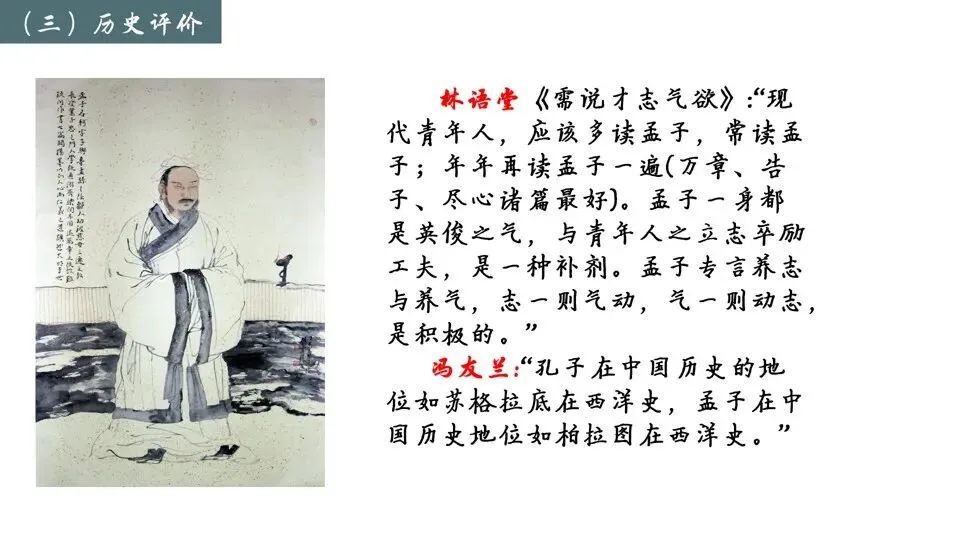 （三）历史评价
林语堂《需说才志气欲》:“现
代青年人，应该多读孟子，常读孟
子；年年再读孟子一遍(万章、告
子、尽心诸篇最好)。孟子一身都
是英俊之气，与青年人之立志卒励
工夫，是一种补剂。孟子专言养志
与养气，志一则气动，气一则动志，
是积极的。”
冯友兰:“孔子在中国历史的地
位如苏格拉底在西洋史，孟子在中
国历史地位如柏拉图在西洋史。”